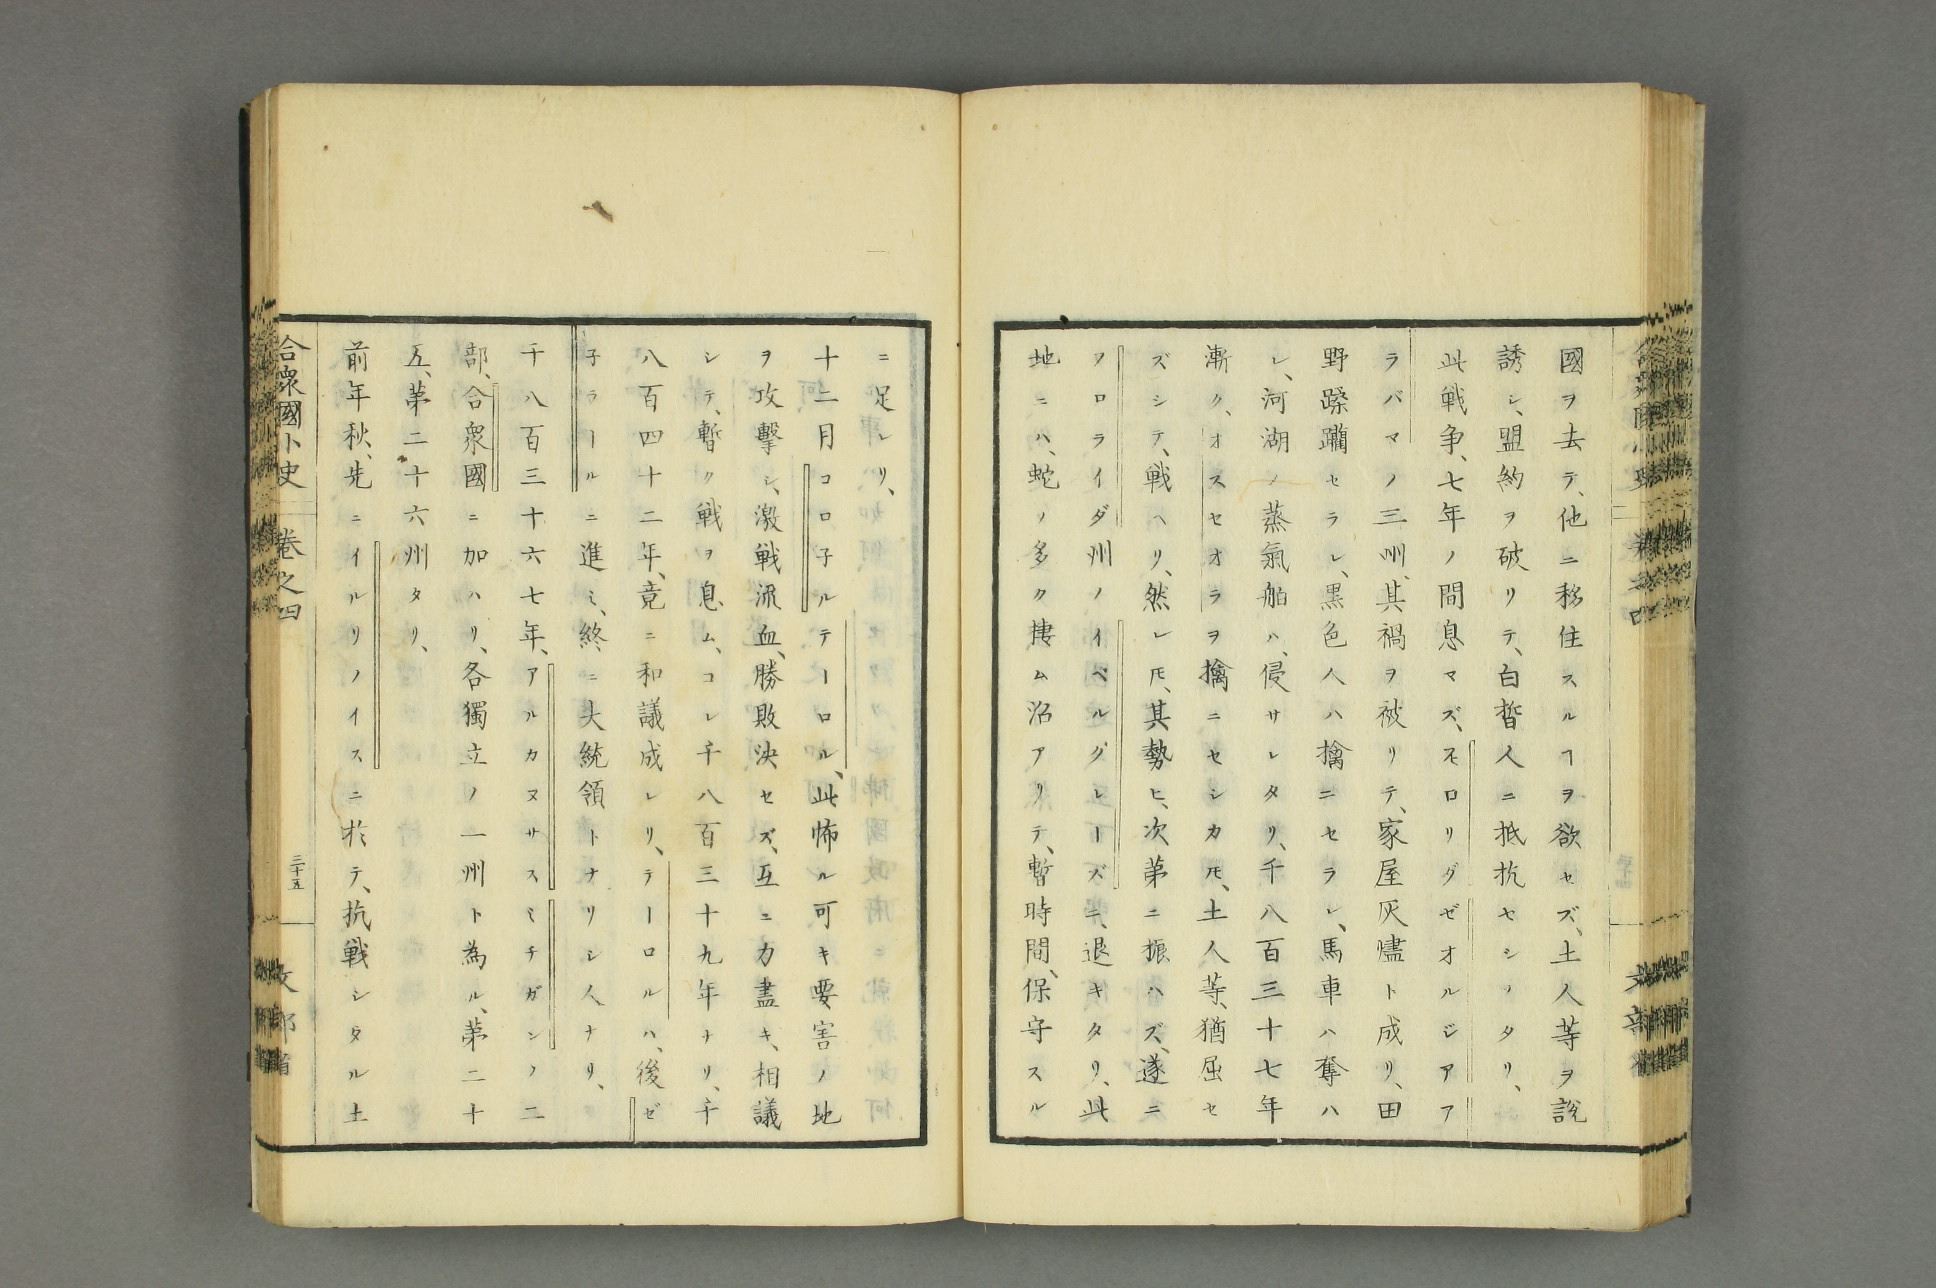 國ヲ去テ、他ニ移住スルヿヲ欲セズ、土人等ヲ說
誘シ、盟約ヲ破リテ、白晳人ニ抵抗セシノタリ、
此戦争、七年ノ間息マズ、フロリダゼオルジアア
ラバマノ三州、其禍ヲ被リテ、家屋灰燼ト成リ、田
野蹂躪セラレ、黒色人ハ擒ニセラレ、馬車ハ奪ハ
レ、河湖ノ蒸氣舶ハ、侵サレタリ、千八百三十七年
漸ク、オスセオラヲ擒ニセシカ𪜈、土人等、猶屈セ
ズシテ、戦ヘリ、然レ𪜈、其勢ヒ、次第ニ振ハズ、遂ニ
フロライダ州ノイベルグレーズニ、退キタリ、此
地ニハ、蛇ノ多ク捿ム沼アリテ、暫時間、保守スル
ニ足レリ、
十二月コロ子ルテーロル、此怖ル可キ要害ノ地
ヲ攻擊シ、激戦流血、勝敗决セズ、互ニ力盡キ、相議
シテ、暫ク戦ヲ息ム、コレ千八百三十九年ナリ、千
八百四十二年、竟ニ和議成レリ、テーロルハ、後ゼ
子ラールニ進ミ、終ニ大統領トナリシ人ナリ、
千八百三十六七年、アルカヌサスミチガンノ二
部、合衆國ニ加ハリ、各獨立ノ一州ト為ル、第二十
五、第二十六州タリ、
前年秋、先ニイルリノイスニ於テ、抗戦シタル土
合衆國小史 卷之四
三十五
文部省